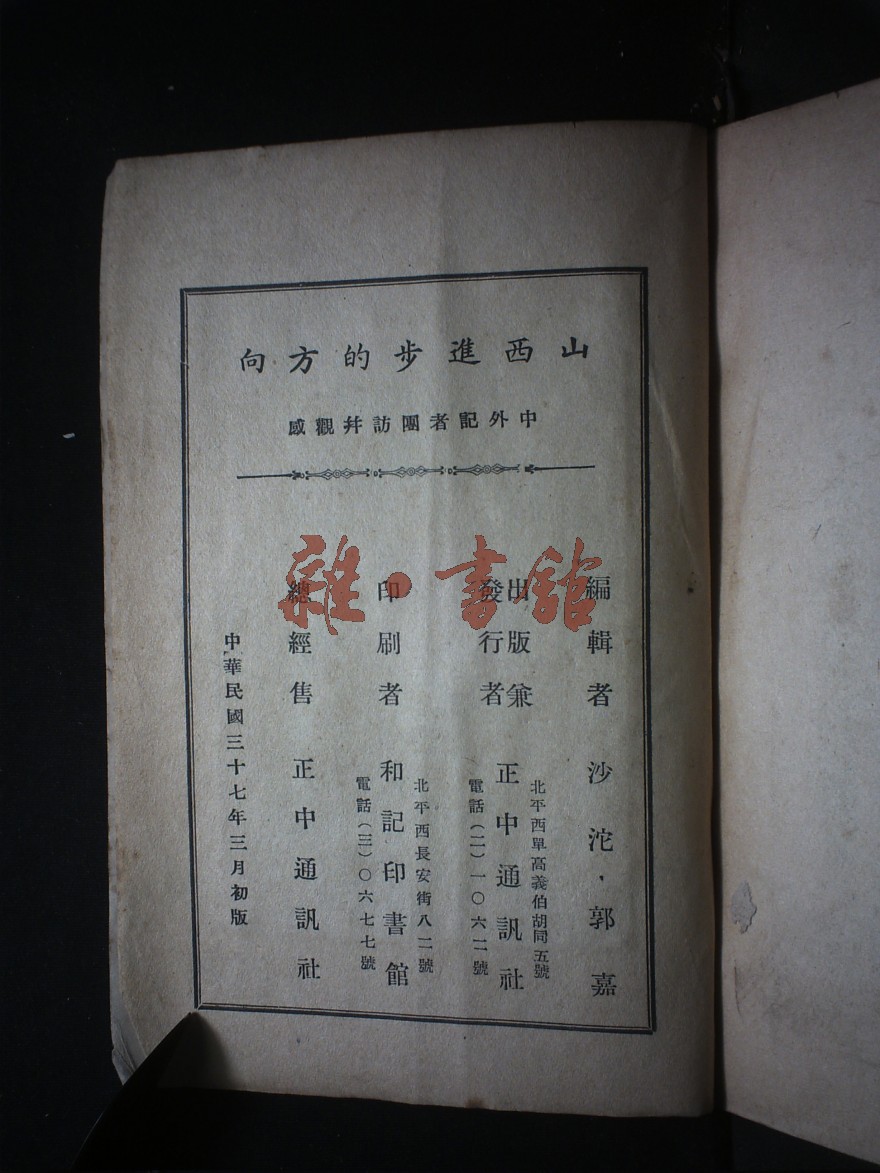 山西進步的方向
中外記者團訪幷觀感
編輯者 沙沱．郭嘉
出版兼
發行者
正中通訊社
北平西單高義伯胡同五號
電話(二)一〇六二號
印刷者 和記印書館
北平西長安街八二號
電話(三)〇六七七號
總經售 正中通訊社
中華民國三十七年三月初版
雜·書館